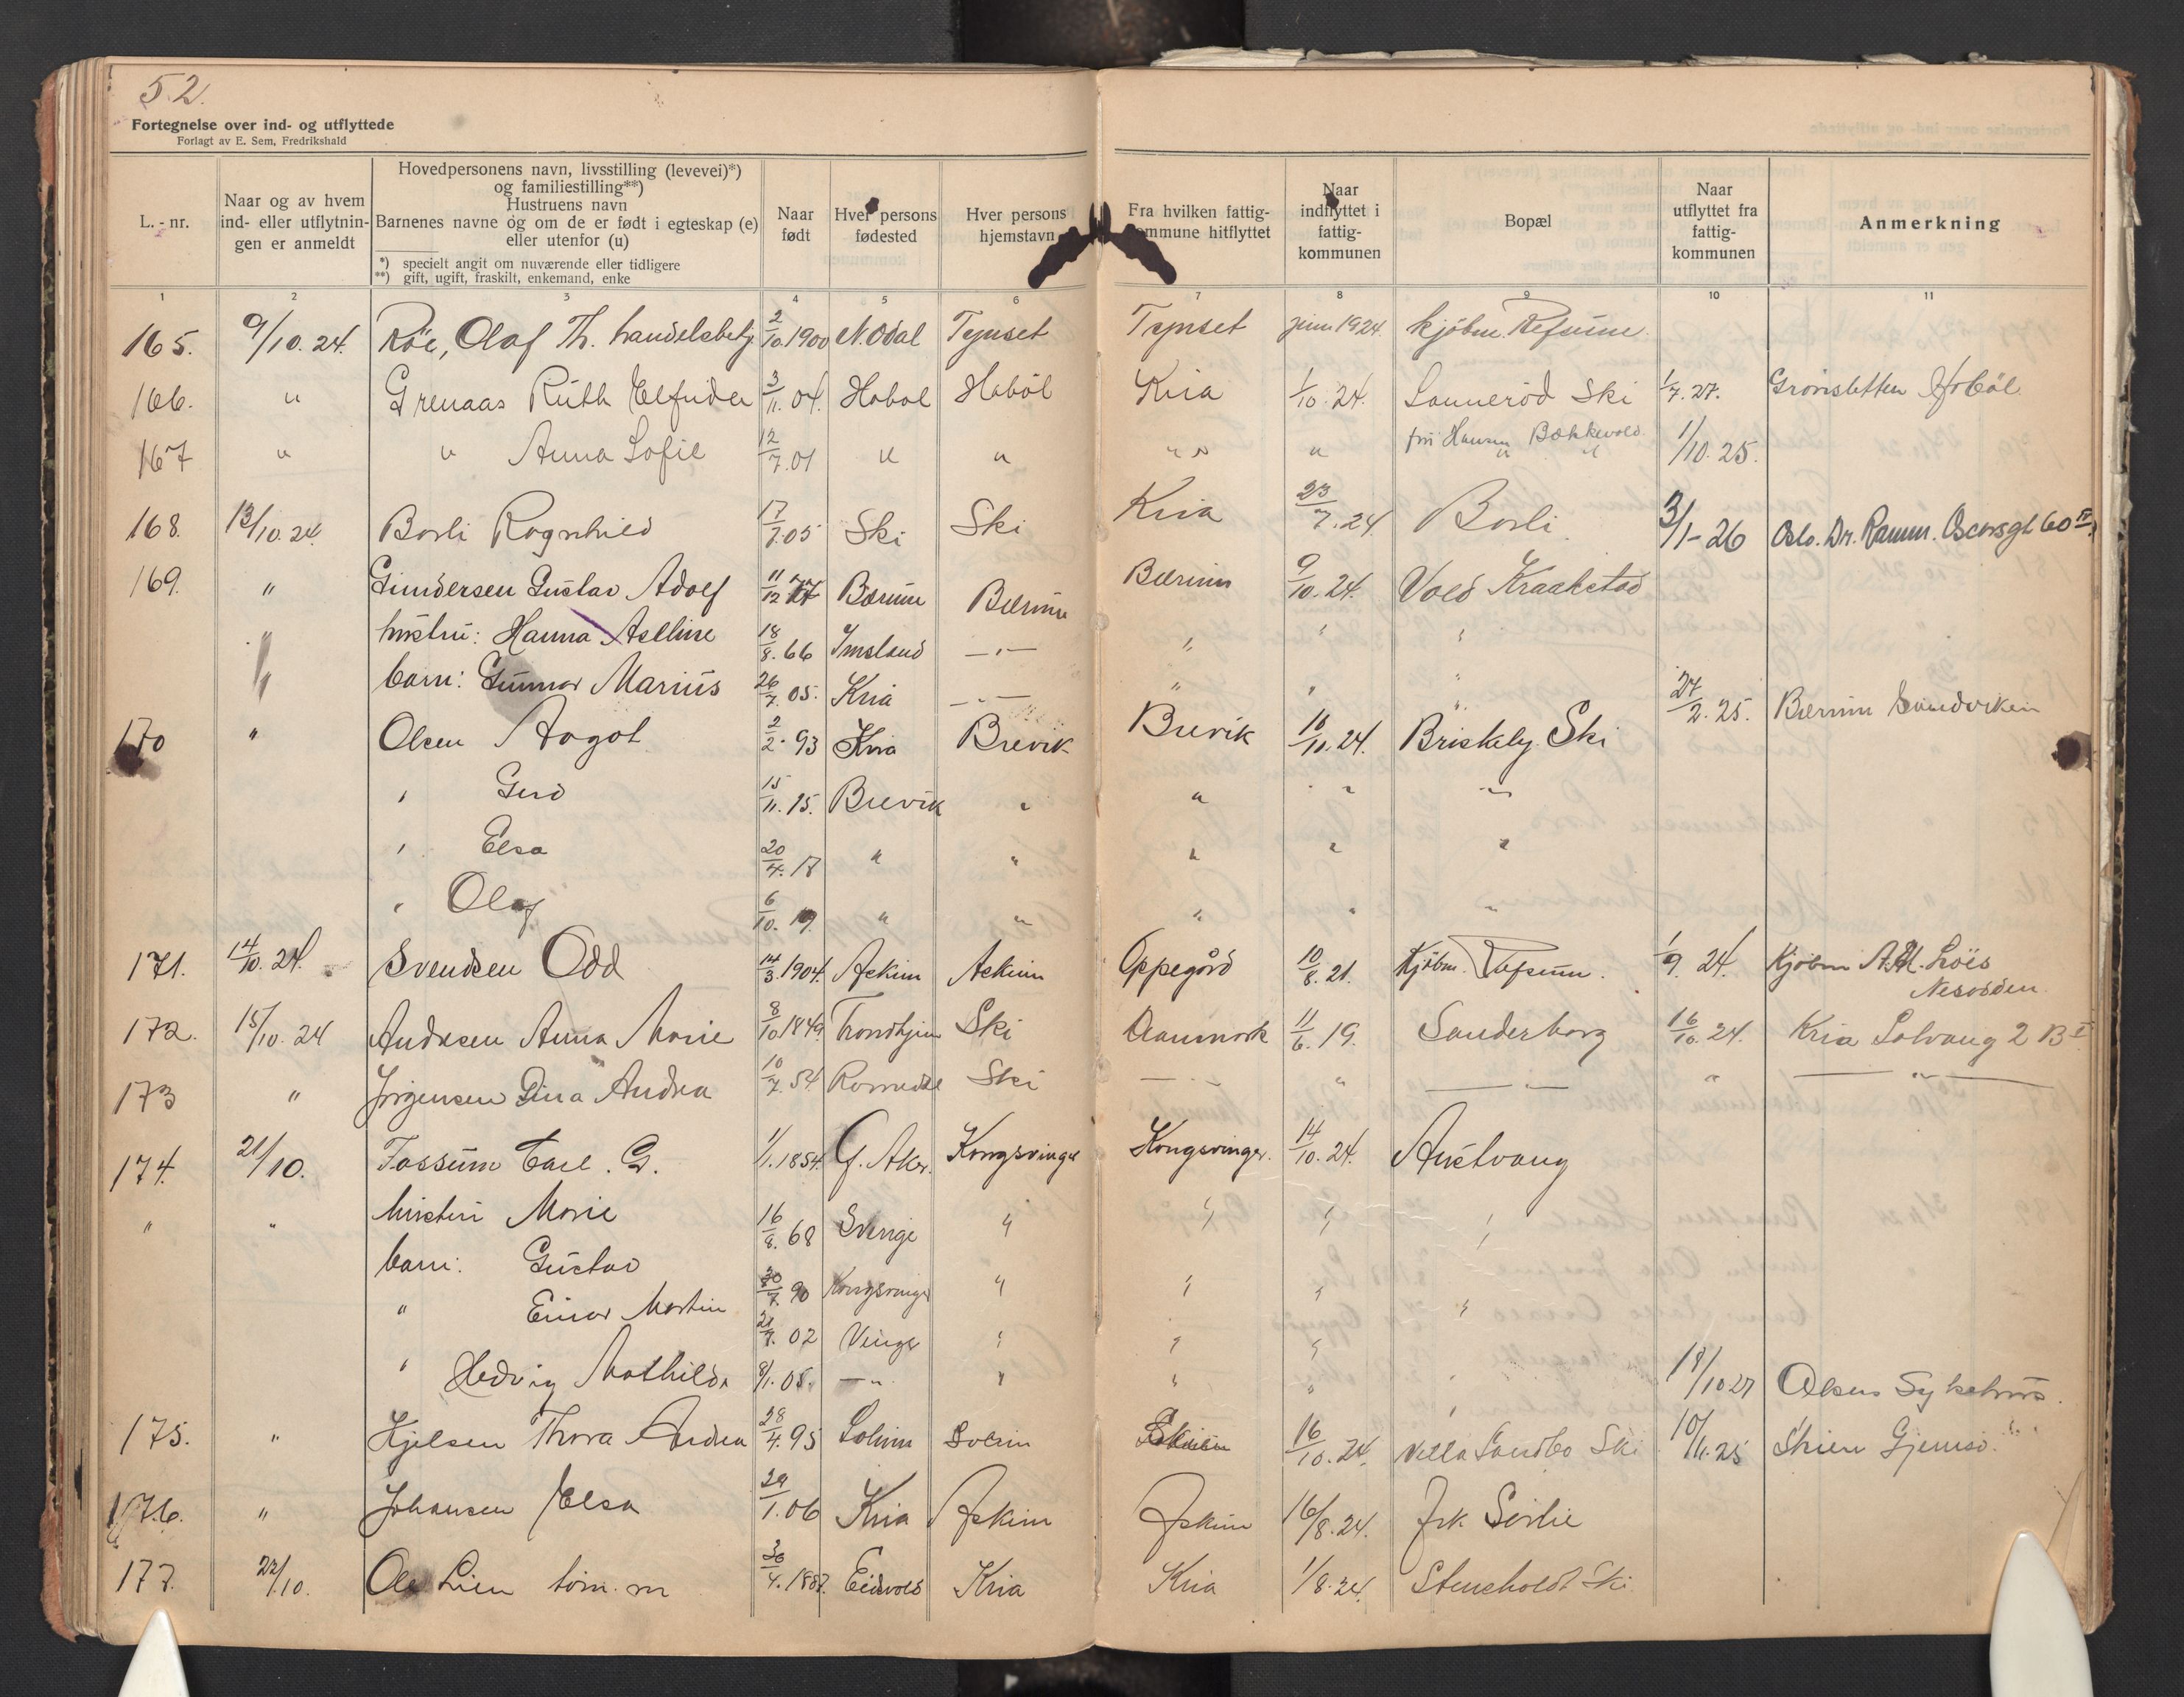 52.
Fortegnelse over ind- og utflyttede
Forlagt av E. Sem, Fredrikshald
L.-nr. | Naar og av hvem ind- eller utflytningen er anmeldt | Hovedpersonens navn, livsstilling (levevei)*) og familiestilling**) Hustruens navn Barnenes navne og om de er født i egteskap (e) eller utenfor (u) *) specielt angit om nuværende eller tidligere **) gift, ugift, fraskilt, enkemand, enke | Naar født | Hver persons fødested | Hver persons hjemstavn | Fra hvilken fattigkommune hitflyttet | Naar indflyttet i fattigkommunen | Bopæl | Naar utflyttet fra fattigkommunen | Anmerkning
1 2 3 4 5 6 7 8 9 10 11
165. 9/10.24. Röe, Olaf Th. handelsbetj. 2/10.1900 N. Odal Tynset Tynset juni 1924 kjøbm. Refsum
166. " Grenaas Ruth Elfrida 3/11.04. Hobøl Hobøl Kria 1/10.24. Sannerød Ski 1/7.27. Hobøl
fru Hansen Bækkevold
167 " " Anna Sofie 12/7.01 " " " " " " 1/10.25.
168. 13/10.24. Borli Ragnhild 17/7.05 Ski Ski Kria 23/7.24 Borli 3/1-26 Oslo. Dr. Ramm. Oscarsgt 60 IV
169. " Gundersen Gustav Adolf 11/12 77 Bærum Bærum Bærum 9/10.24. Vold Kraakstad
hustru: Hanna Aseline 18/8.66 Imsland —"— " " "
barn: Gunnar Marius 26/7.05. Kria —"— " " " 27/2.25. Bærum Sandviken
170 " Olsen Aagot 2/2.93 Kria Brevik Brevik 10/10.24. Briskeby Ski
" Gerd 15/11.15. Brevik " " " "
" Elsa 20/4.17 " " " " "
" Olaf 6/10.19. " " " " "
171. 14/10.24. Svendsen Odd 14/3.1904. Askim Askim Oppegård 10/8.21. Kjøbm. Refsum. 1/9.24. Kjøbm A.M. Löes
Nesodden
172. 15/10.24 Andresen Anna Marie 8/10 1849. Trondhjem Ski Danmark 11/6.19. Sanderborg 16/10.24. Kria Solvang 2 B I
173 " Jörgensen Dina Andrea 10/7.54. Romedal Ski —"— " —"— " —"—
174. 21/10. Fossum Carl. G. 1/1.1854. G. Aker. Kongsvinger Kongsvinger. 14/10.24. Austvang
" " hustru Marie 16/8.68 Sverige " " " "
barn: Gustav 30/7.90 Kongsvinger " " "
" Einar Martin 21/9.02 Vinger " " " "
" Hedvig Mathilde 8/1.05. —"— " " " " 18/10 27 Akers Sykehus.
175. " Kjelsen Thora Andrea 28/4.95 Solum Solum Skien 16/10.24. Villa Sandbo Ski 10/11.25 Skien Gjemsö.
176. " Johansen Elsa 29/1.06 Kria Askim Askim 16/8.24. Frk Sörlie
177. 22/10. Ole Lien töm.m 30/4.1887. Eidsvold Kria Kria 1/8.24. Stenshold Ski